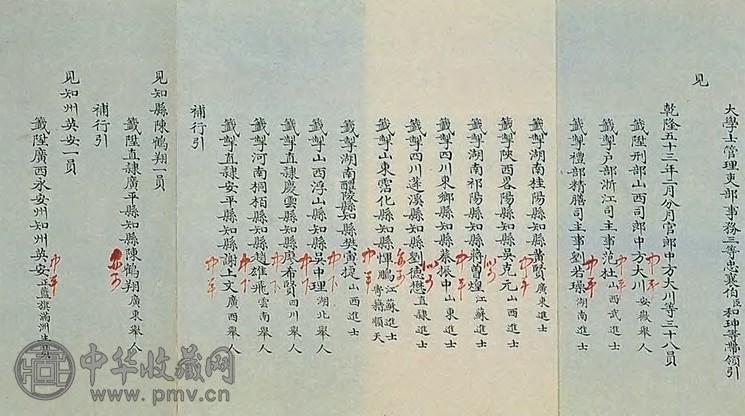 大學士管理吏部事務三等忠襄伯臣和珅等帶領引
見
乾隆五十三年二月分月官郎中方大川等三十八員
籤陞刑部山西司郎中方大川安徽舉人
籤掣戶部浙江司主事范杜山西武進士
籤掣禮部精膳司主事劉若璪湖南進士
籤掣湖南桂陽縣知縣黃賢廣東進士
籤掣陝西畧陽縣知縣吳克元山西進士
籤掣湖南祁陽縣知縣蔣曾煌江蘇進士
籤掣四川東鄉縣知縣蔡振中山東進士
籤掣四川蓬溪縣知縣劉德懋直隸進士
籤掣山東霑化縣知縣惲鵬江蘇進士寄籍順天
籤掣湖南醴陵縣知縣樊寅捷山西進士
籤掣山西浮山縣知縣吳中理湖北舉人
籤掣直隸慶雲縣知縣廖希賢四川舉人
籤掣河南桐柏縣知縣趙雄飛雲南舉人
籤掣直隸安平縣知縣謝上文廣西舉人
補行引
見知縣陳鶴翔一員
籤陞直隸廣平縣知縣陳鶴翔廣東舉人
補行引
見知州英安一員
籤陞廣西永安州知州英安正藍旗滿洲
中平
中平
中平
中平
中平
中平
中下
中下
中下
中平
中平
中华收藏网
www.pmv.cn